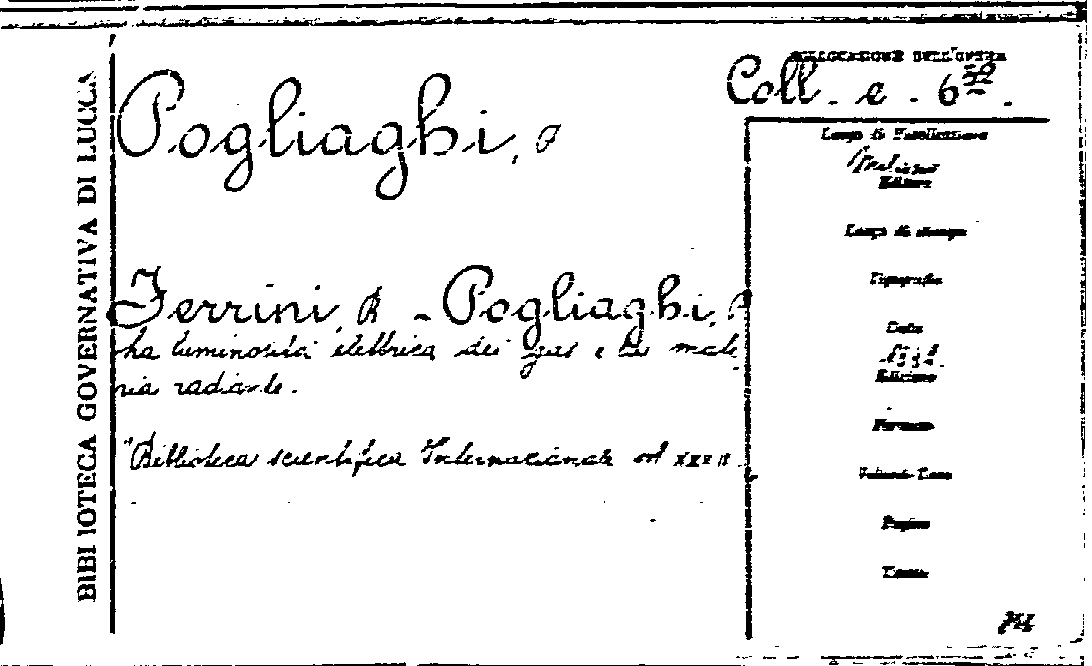 BIBLIOTECA GOVERNATIVA DI LUCCA
COLLOCAZIONE DELL'OPERA
Coll. e. 6
Pogliaghi, P
Luogo di Pubblicazione
Milano
Editore
Luogo di stampa
Tipografia
Data
Edizione
Formato
Volumi
Pagine
Ferrini, R - Pogliaghi, P
La luminosità elettrica dei gas e la mate
ria radiante.
"Biblioteca scientifica Internazionale vol